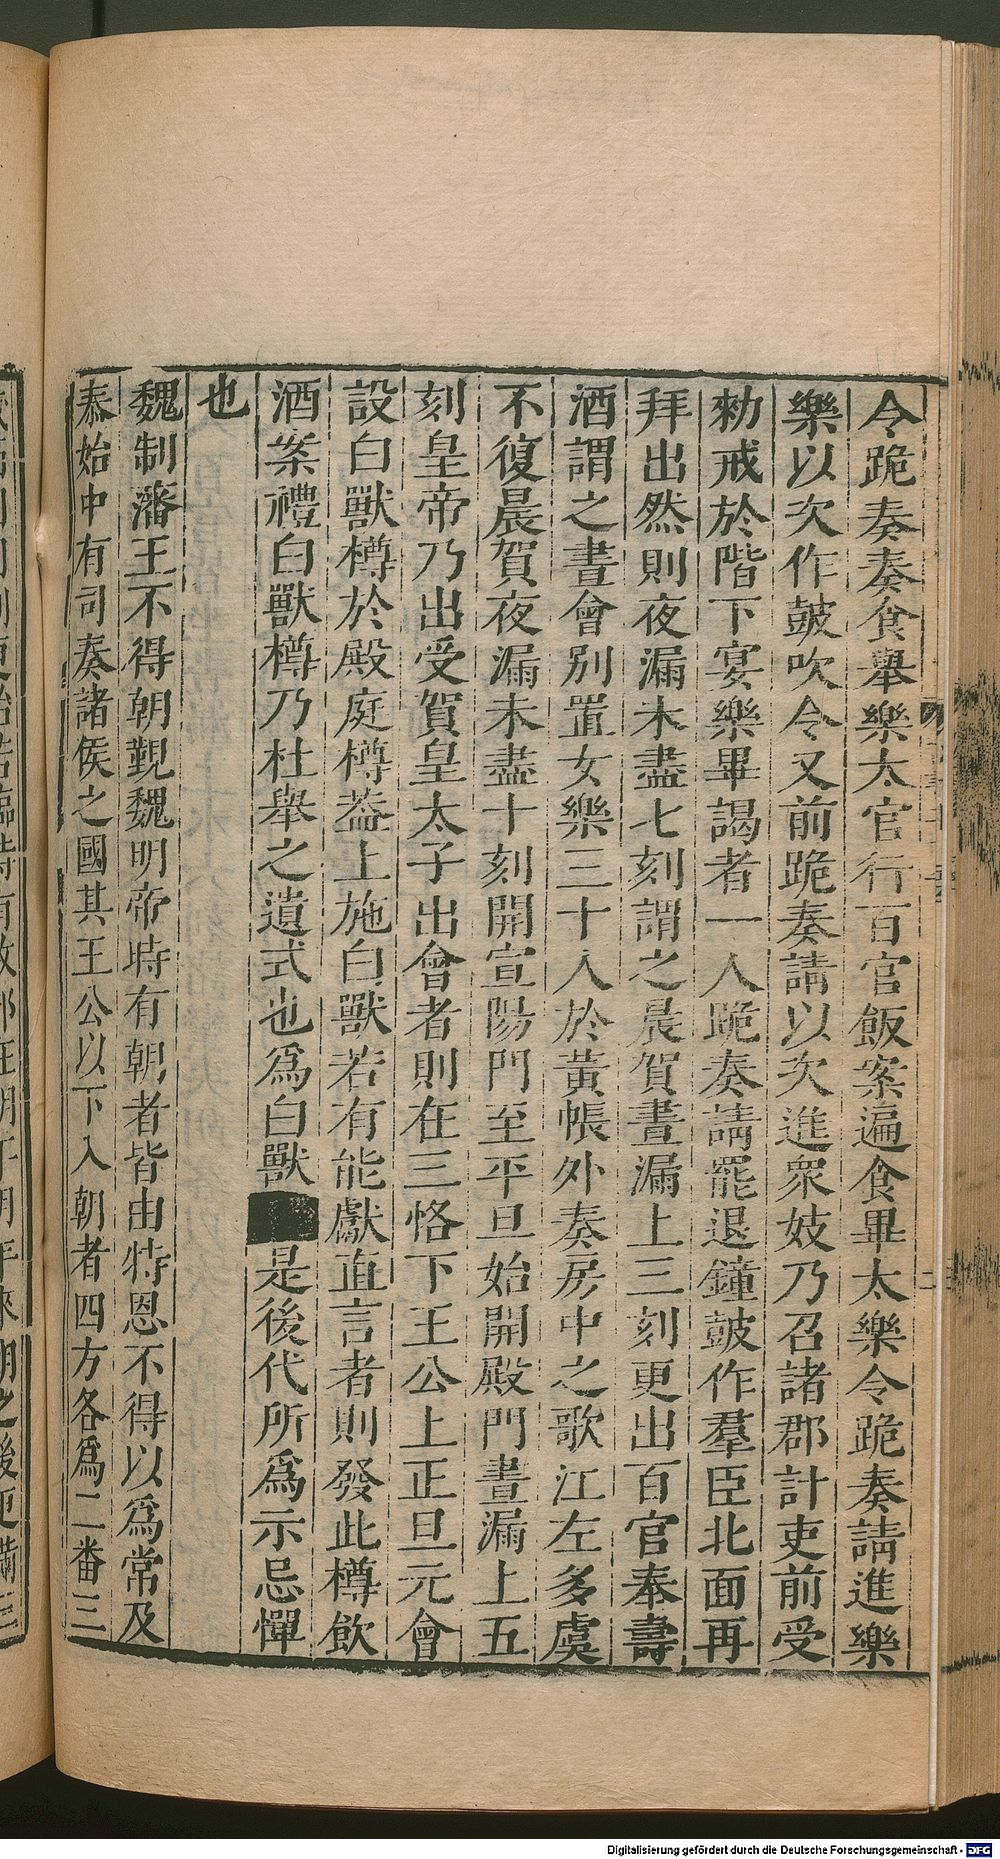 令跪奏奏食舉樂太官行百官飯案遍食畢太樂令跪奏請進樂
樂以次作鼓吹令又前跪奏請以次進衆妓乃召諸郡計吏前受
勑戒於階下宴樂畢謁者一人跪奏請罷退鐘鼓作羣臣北面再
拜出然則夜漏未盡七刻謂之晨賀晝漏上三刻更出百官奉壽
酒謂之晝會別置女樂三十人於黃帳外奏房中之歌江左多虞
不復晨賀夜漏未盡十刻開宣陽門至平旦始開殿門晝漏上五
刻皇帝乃出受賀皇太子出會者則在三恪下王公上正旦元會
設白獸樽於殿庭樽葢上施白獸若有能獻直言者則發此樽飲
酒案禮白獸樽乃杜舉之遺式也爲白獸是後代所爲示忌憚
也
魏制藩王不得朝覲魏明帝時有朝者皆由特恩不得以爲常及
泰始中有司奏諸侯之國其王公以下入朝者四方各爲二番三
Digitalisierung gefördert durch die Deutsche Forschungsgemeinschaft - DFG